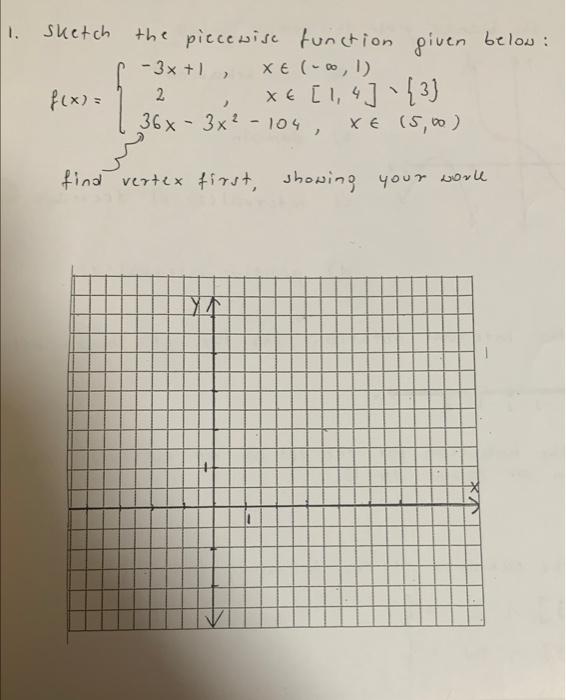 1. Sketch the piecewise function given below:
f(x) = { -3x+1, x ∈ (-∞, 1)
2, x ∈ [1, 4] \ {3}
36x - 3x² - 104, x ∈ (5, ∞)
find vertex first, showing your work
y
1
x
1